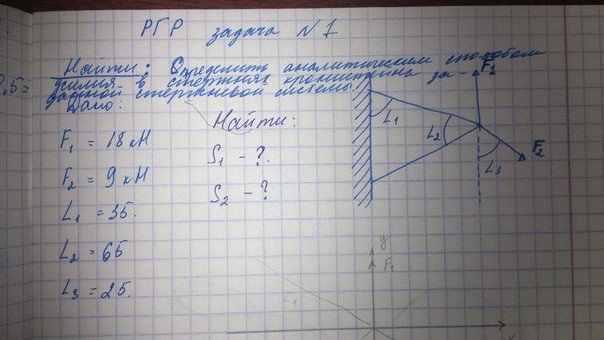 РГР задача №1
Найти: Определить аналитическим способом
усилия в стержнях кронштейна за-
данной стержневой системы.
Дано:
Найти:
F₁ = 18 кН
F₂ = 9 кН
L₁ = 35.
L₂ = 65
L₃ = 25.
S₁ - ?
S₂ - ?
L₁
L₂
F₁
F₂
L₃
y
F₁
x